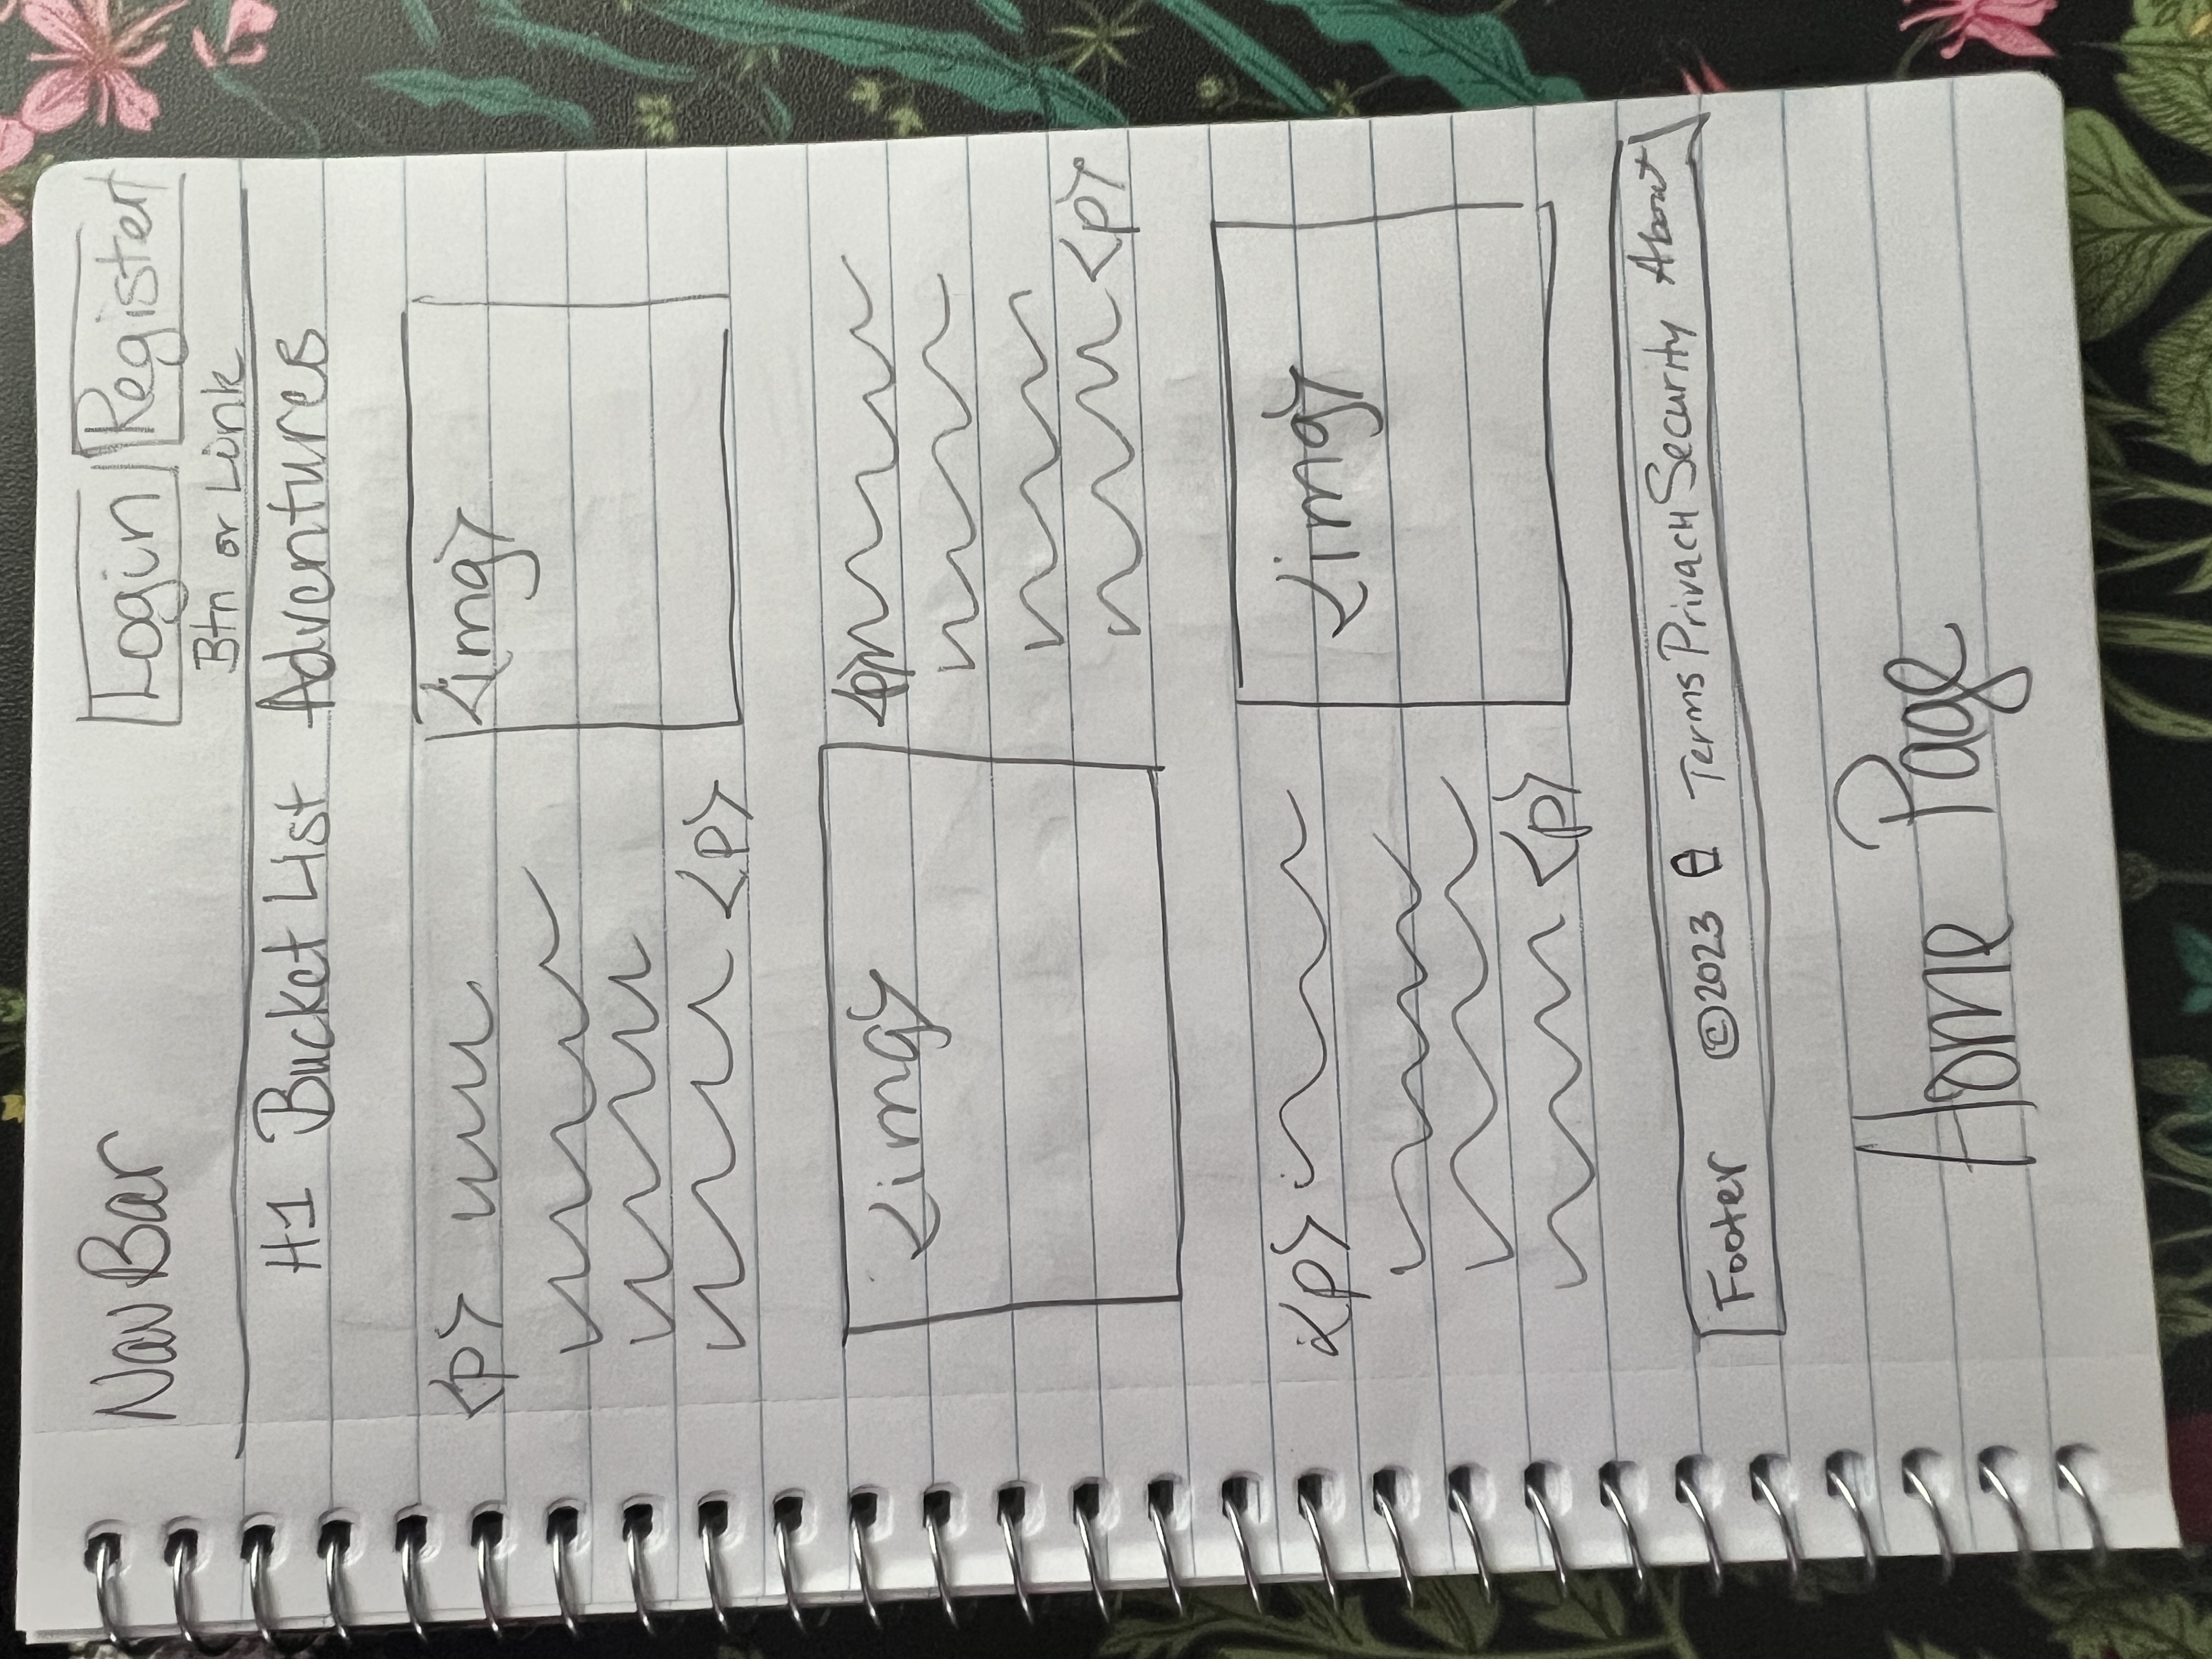 NavBar Login Register
Btn or Link
H1 Bucket List Adventures
<p> <img>
<p>
<img> <p>
<p>
<p> <img>
<p>
Footer ©2023 Terms Privacy Security About
Home Page